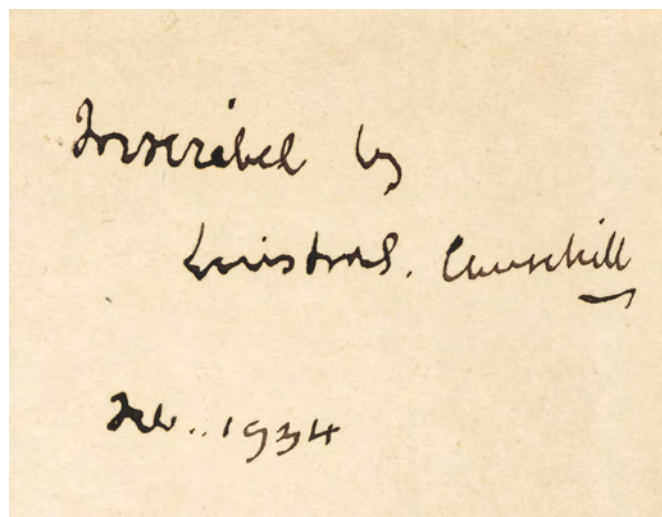 Inscribed by
Winston S. Churchill
Feb. 1934